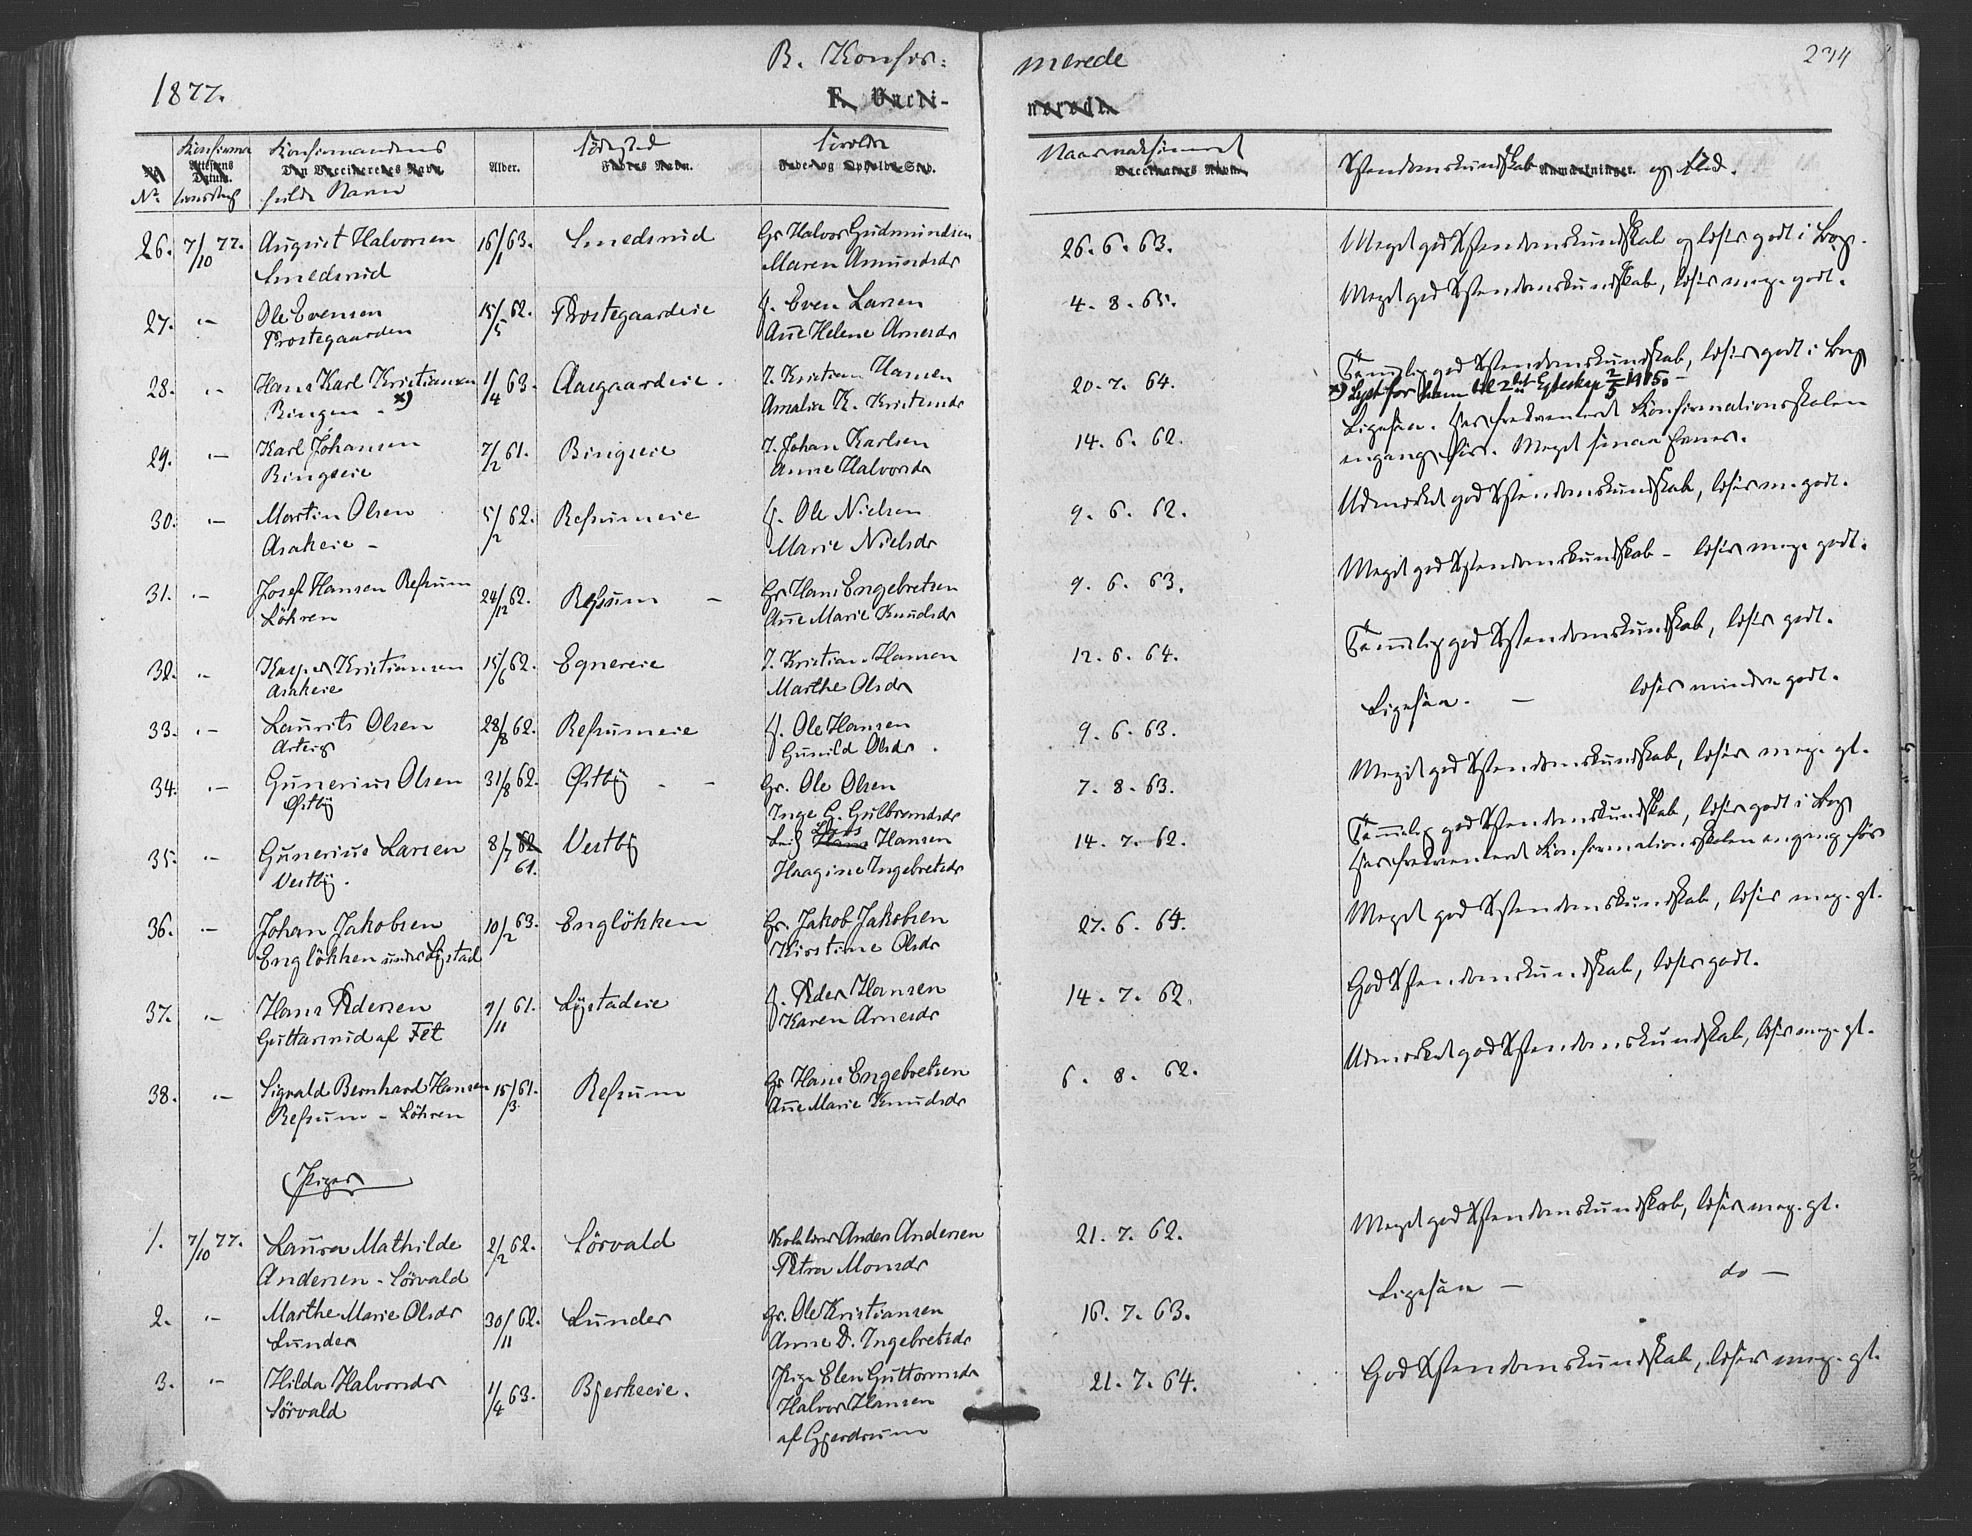 1877.
B. Konfir-
merede
234
F. Vacci-
nerede.
Konfirma
tionsdag
Attestens Datum.
No.
Konfirmandens
Den Vaccineredes Navn
fulde Navn
Alder.
Födested
Fødres Navn.
Forældre
Fade- og Opholds-Sted.
Naar vaksineret
Vaccinateurs Navn.
Kristendomskundskab Anmærkninger. og Flid.
26. 7/10 77. August Halvorsen 16/1 63. Smedsrud Gr Halvor Gudmundsen 26. 6. 63. Meget god Kristendomskundskab og læser godt i Bog.
Smedsrud Maren Amundsdr
27. " – Ole Evensen 15/5 62. Prestegaardeie f. Even Larsen 4. 8. 65. Meget god Kristendomskundskab, læser meg. godt.
Prestegaarden Ane Helene Arnesdr
28. " – Hans Karl Kristiansen 1/4 63. Aasgaardeie. I. Kristian Hansen 20. 7. 64. Temmelig god Kristendomskundskab, læser godt i Bog
Ringen – x) Amalia K. Kristensdr x) Lyst for ham til 2det Egteskap 2/5 1915. –
29. " – Karl Johansen 7/2 61. Ringseie I. Johan Karlsen 14. 6. 62. Ligesaa. Har frekventeret Konfirmationsskolen
Ringseie Anne Halvorsdr engang før. Meget smaa Evner.
30. " – Martin Olsen 5/2 62. Refsumeie f. Ole Nielsen 9. 6. 62. Udmerket god Kristendomskundskab, læser m. godt.
Asakeie – Marie Nielsdr
31. " – Josef Hansen Refsum 24/12 62. Refsum – Gr Hans Engebretsen 9. 6. 63. Meget god Kristendomskundskab – læser meg. godt.
Löhren Ane Marie Knudsdr
32. " – Kasper Kristiansen 15/6 62. Egnereie I. Kristian Hansen 12. 6. 64. Temmelig god Kristendomskundskab, læser godt.
Asakeie Marthe Olsdr
33. " – Laurits Olsen 28/8 62. Refsumeie f. Ole Hansen 9. 6. 63. Ligesaa. – læser mindre godt.
Gunild Olsdr.
34. " – Gunerius Olsen 31/8 62. Østby – – Gr. Ole Olsen 7. 8. 63. Meget god Kristendomskundskab, læser meg. gt.
Østby Inge G. Gulbrandsdr
35. " – Gunerius Larsen 8/7 62 61. Vestby Lars Hans Hansen 14. 7. 62. Temmelig god Kristendomskundskab, læser godt i Bog
Vestby. Haagine Ingebretsdr Har frekventeret Konfirmationsskolen engang før
36. " – Johan Jakobsen 10/2 63. Englökken Gr. Jakob Jakobsen 27. 6. 64. Meget god Kristendomskundskab, læser meg. gt.
Englökken under Lystad Kirstine Olsdr
37. " – Hans Pedersen 9/11 61. Lystadeie f. Peder Hansen 14. 7. 62. God Kristendomskundskab, læser godt.
Guttersrud af Fet Karen Arnesdr
38. " – Sigvald Bernhard Hansen 15/3 61. Refsum Gr Hans Engebretsen 6. 8. 62. Udmerket god Kristendomskundskab, læser meg. gt.
Refsum – Löhren Ane Marie Knudsdr
Piger
1. 7/10 77. Laura Mathilde 2/2 62. Sörvald Anders Andersen 21. 7. 62. Meget god Kristendomskundskab, læser meg. gt.
Andersen – Sörvald Petra Monsdr
2. " – Marthe Marie Olsdr 30/11 62. Lunder Gr. Ole Kristiansen 16. 7. 63. Ligesaa – do –
Lunder Anne D. Ingebretsdr
3. " – Hilda Halvorsdr 1/4 63. Bjerkeeie. Pige Elen Guttormsdr 21. 7. 64. God Kristendomskundskab, læser meg. gt.
Sörvald Halvor Hansen
af Gjerdrum